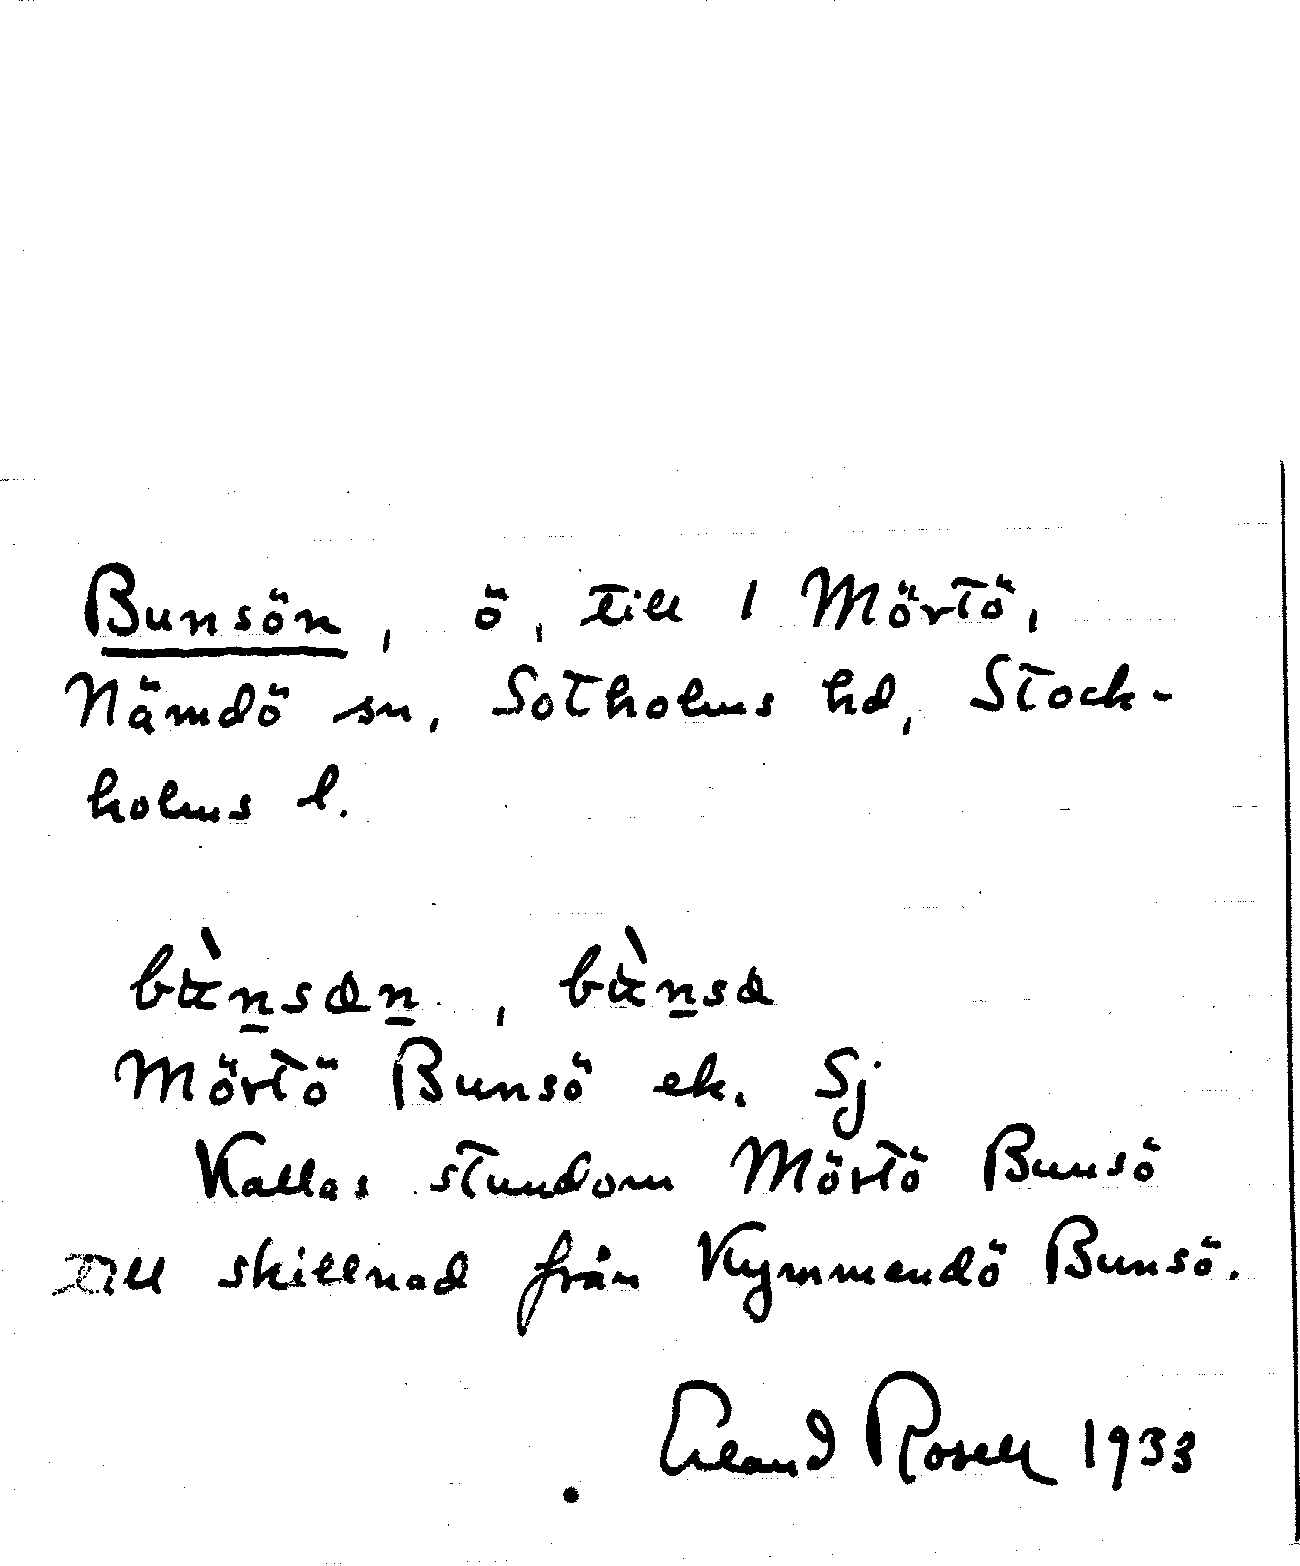 Bunsön, ö, till 1 Mörtö,
Nämdö sn, Sotholms hd, Stock-
holms l.
Mörtö Bunsö ek. Sj
Kallas stundom Mörtö Bunsö
till skillnad från Kymmendö Bunsö.
Erland Rosell 1933